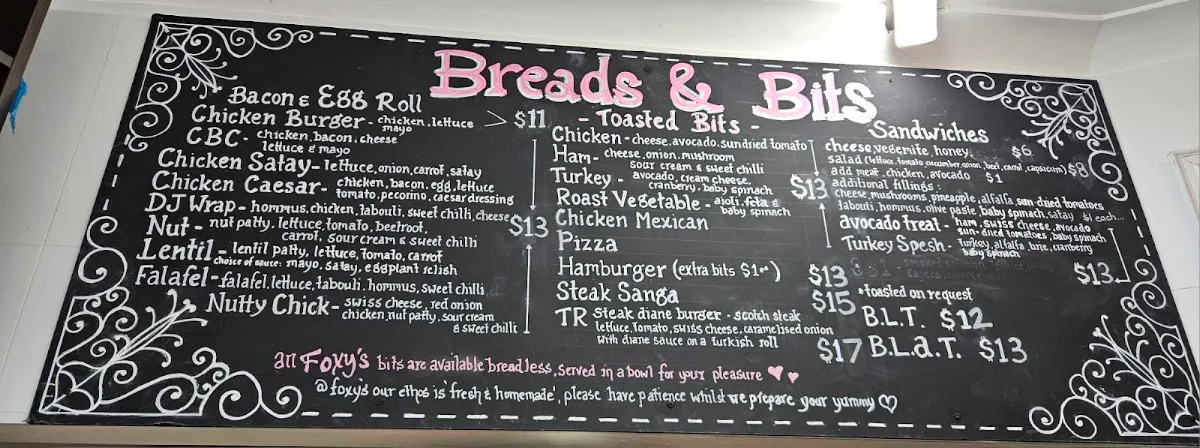 Breads & Bits
Bacon & Egg Roll
Chicken Burger - chicken, lettuce
mayo
> $11
CBC - chicken, bacon, cheese
lettuce & mayo
Chicken Satay - lettuce, onion, carrot, satay
Chicken Caesar - chicken, bacon, egg, lettuce
tomato, pecorino, caesar dressing
DJ Wrap - hommus, chicken, tabouli, sweet chilli, cheese
Nut - nut patty, lettuce, tomato, beetroot,
carrot, sour cream & sweet chilli
$13
Lentil - lentil patty, lettuce, tomato, carrot
choice of sauce: mayo, satay, eggplant relish
Falafel - falafel, lettuce, tabouli, hommus, sweet chilli
Nutty Chick - swiss cheese, red onion
chicken, nut patty, sour cream
& sweet chilli
- Toasted Bits -
Chicken - cheese, avocado, sundried tomato
Ham - cheese, onion, mushroom
sour cream & sweet chilli
Turkey - avocado, cream cheese,
cranberry, baby spinach
$13
Roast Vegetable - aioli, feta &
baby spinach
Chicken Mexican
Pizza
Hamburger (extra bits $1ea) $13
Steak Sanga $15
TR steak diane burger - scotch steak
lettuce, tomato, swiss cheese, caramelised onion
with diane sauce on a turkish roll
$17
Sandwiches
cheese, vegemite, honey $6
salad (lettuce, tomato, cucumber, onion, beet, carrot, capsicum) $8
add meat, chicken, avocado $1
additional fillings:
cheese, mushrooms, pineapple, alfalfa, sun-dried tomatoes
tabouli, hommus, olive paste, baby spinach, satay $1 each...
avocado treat - ham, swiss cheese, avocado
sun-dried tomatoes, baby spinach
Turkey Spesh - turkey, alfalfa, brie, cranberry
baby spinach
$13
*toasted on request
B.L.T. $12
B.L.a.T. $13
all Foxy's bits are available breadless, served in a bowl for your pleasure ♥♥
@ foxys our ethos is 'fresh & homemade', please have patience whilst we prepare your yummy ♡